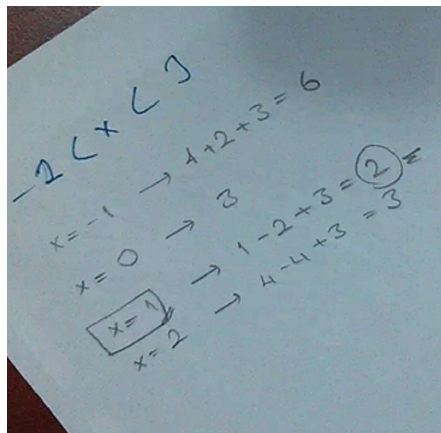 -2 < x < 3
x = -1 → 4+2+3 = 6
x = 0 → 3
x = 1 → 1-2+3 = 2
x = 2 → 4-4+3 = 3